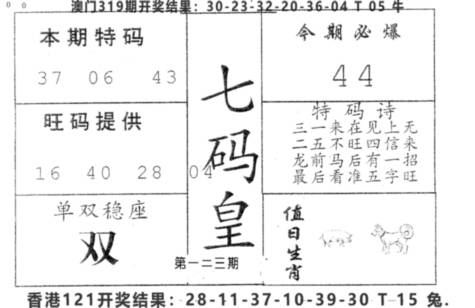 澳门319期开奖结果：30-23-32-20-36-04 T 05 牛
本期特码
37 06 43
旺码提供
16 40 28 04
单双稳座
双
七码皇
第一二三期
今期必爆
44
特码诗
三一来在见上无
二五不旺四信来
龙前马后有一招
最后看准五字旺
值日生肖
香港121开奖结果：28-11-37-10-39-30 T 15 兔.